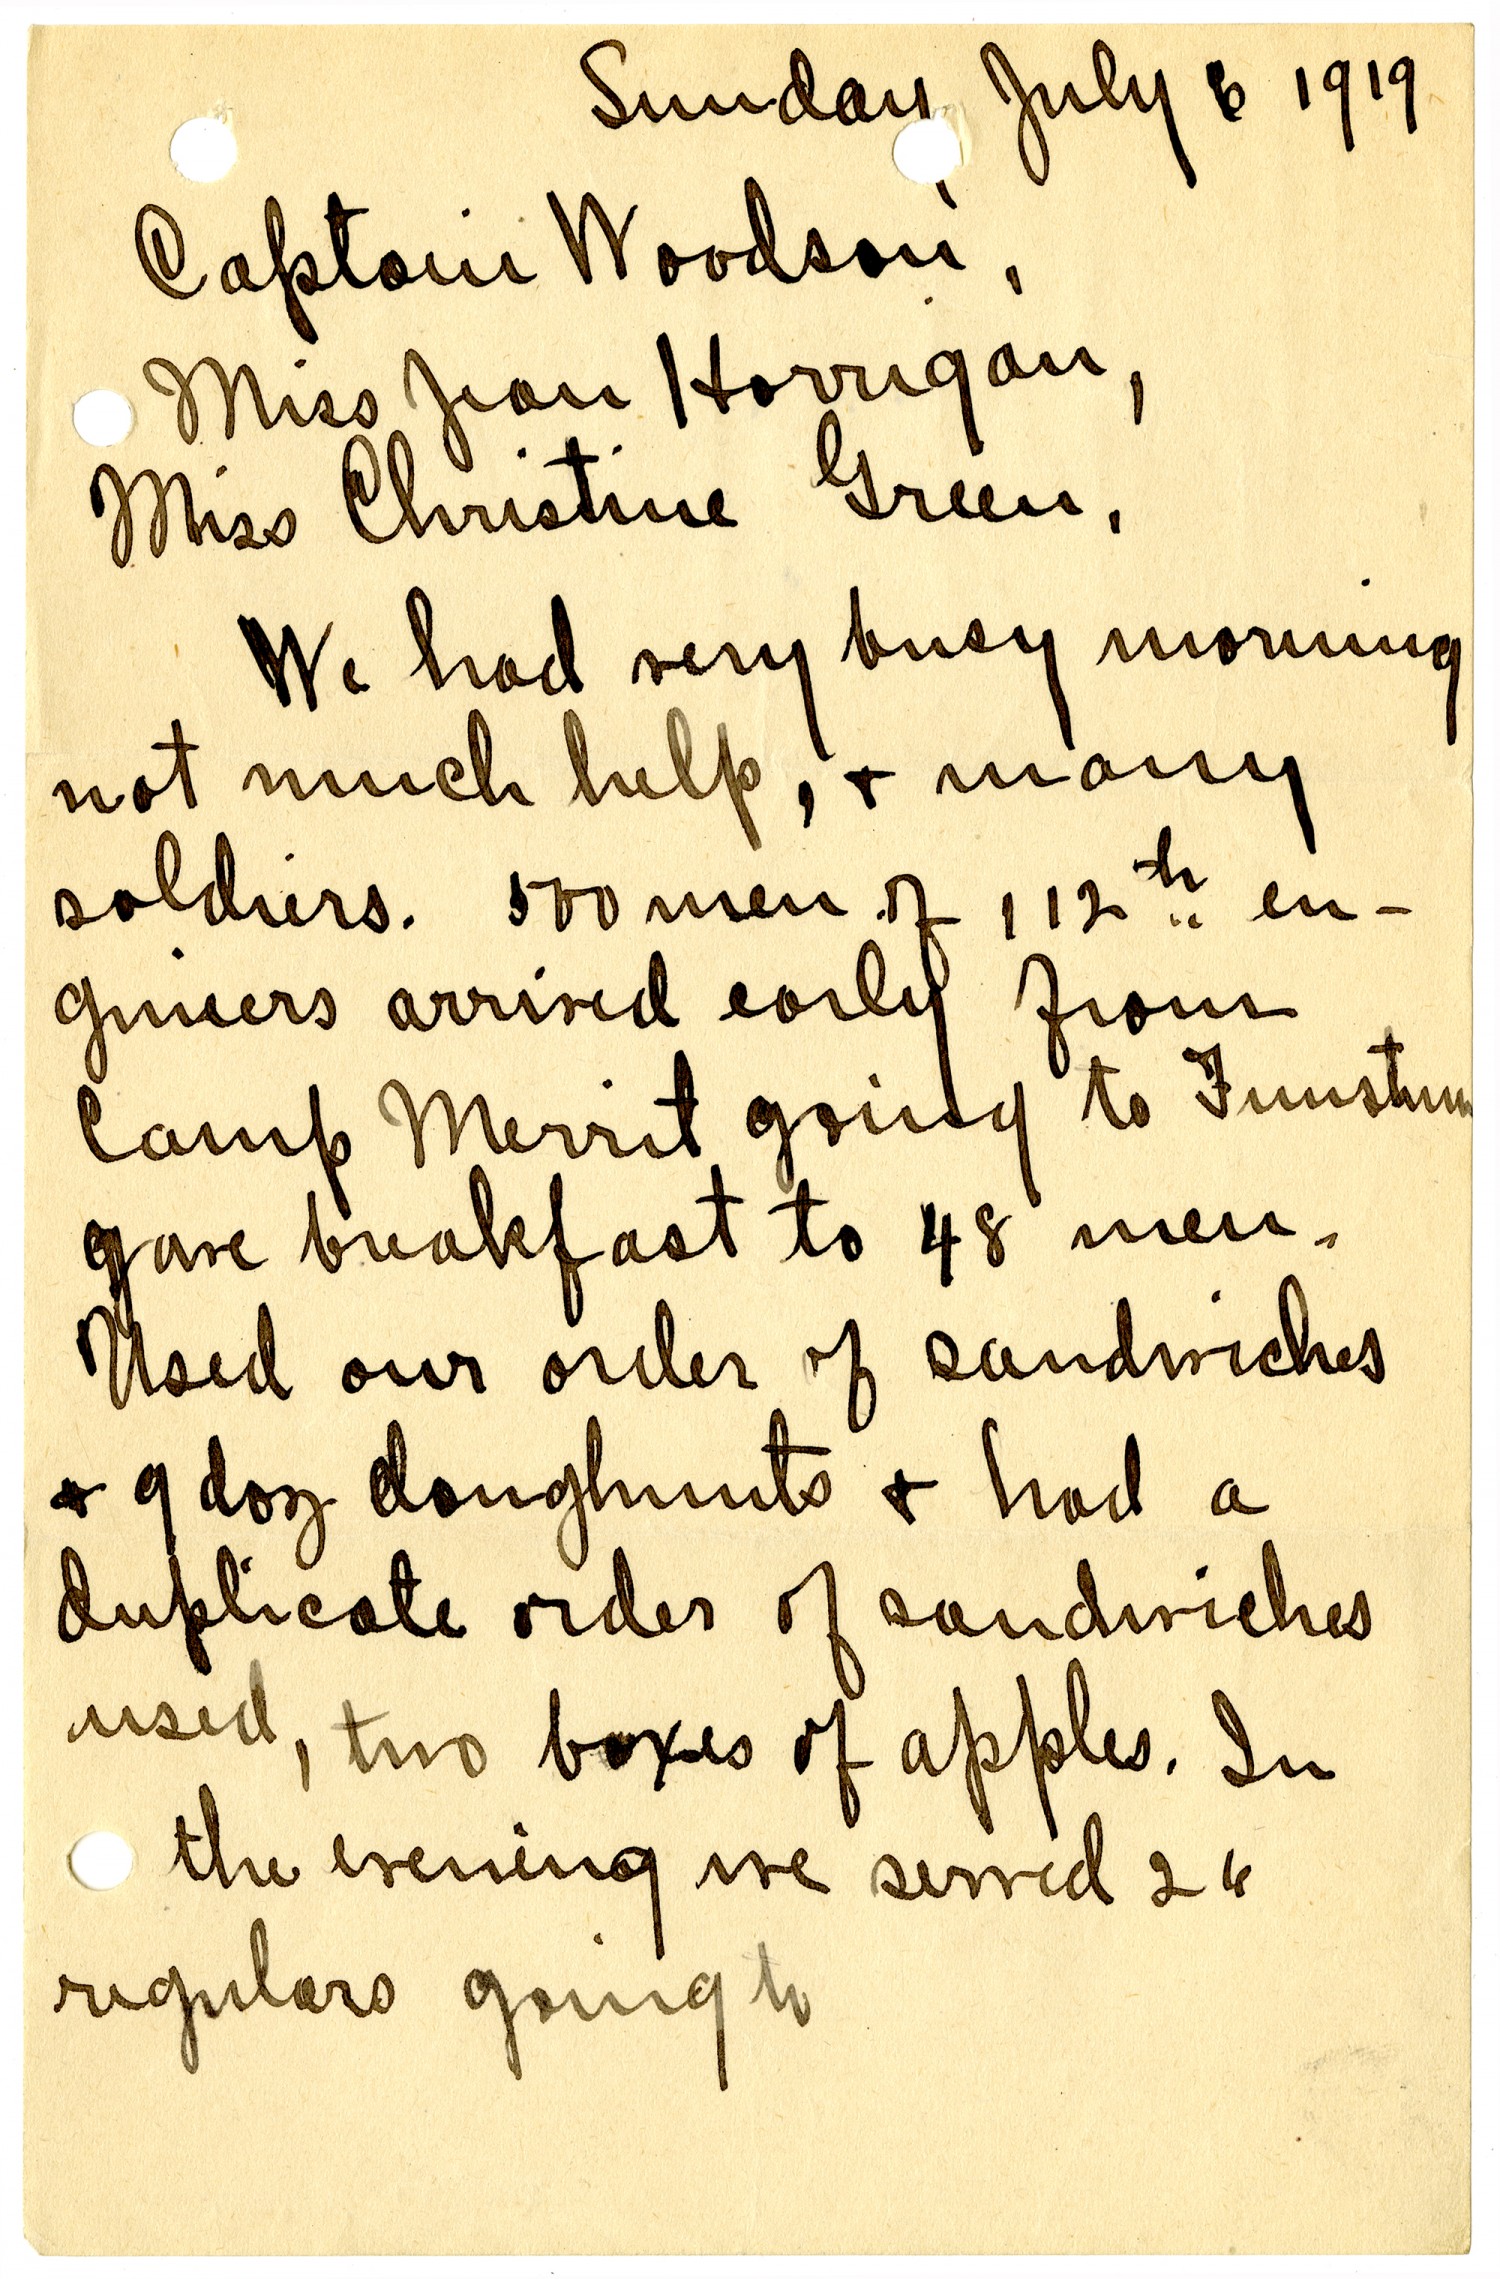 Sunday, July 6 1919
Captain Woodson,
Miss Jean Horrigan,
Miss Christine Green.
We had very busy morning
not much help, & many
soldiers. 500 men of 112th en-
gineers arrived early from
Camp Merrit going to Funston
gave breakfast to 48 men.
Used our order of sandwiches
& 9 doz doughnuts & had a
duplicate order of sandwiches
used, two boxes of apples. In
the evening we served 26
regulars going to